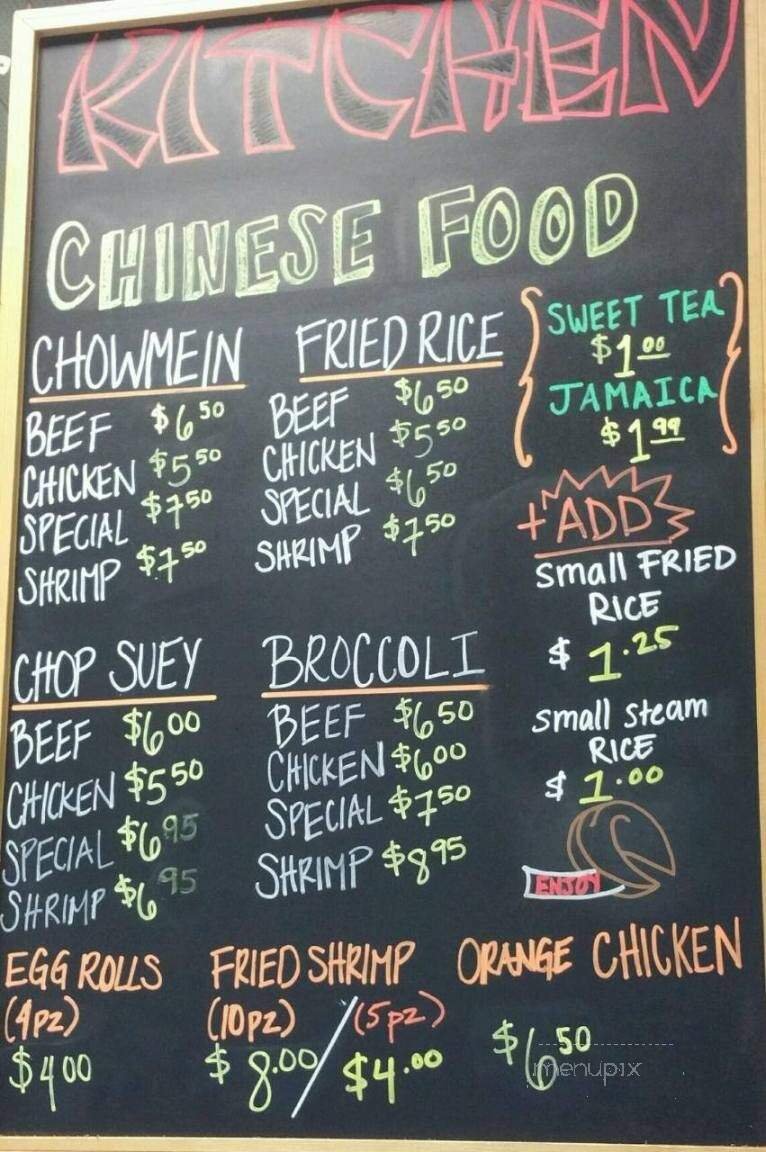 KITCHEN
CHINESE FOOD
CHOWMEIN
BEEF $6 50
CHICKEN $5 50
SPECIAL $7 50
SHRIMP $7 50
FRIED RICE
BEEF $6 50
CHICKEN $5 50
SPECIAL $6 50
SHRIMP $7 50
SWEET TEA
$1 00
JAMAICA
$1 99
+ADD
Small FRIED
RICE
$ 1.25
Small Steam
RICE
$ 1.00
ENJOY
CHOP SUEY
BEEF $6 00
CHICKEN $5 50
SPECIAL $6 95
SHRIMP $6 95
BROCCOLI
BEEF $6 50
CHICKEN $6 00
SPECIAL $7 50
SHRIMP $8 95
EGG ROLLS
(4pz)
$4 00
FRIED SHRIMP
(10pz) / (5pz)
$ 8.00 / $4.00
ORANGE CHICKEN
$6 50
menupix